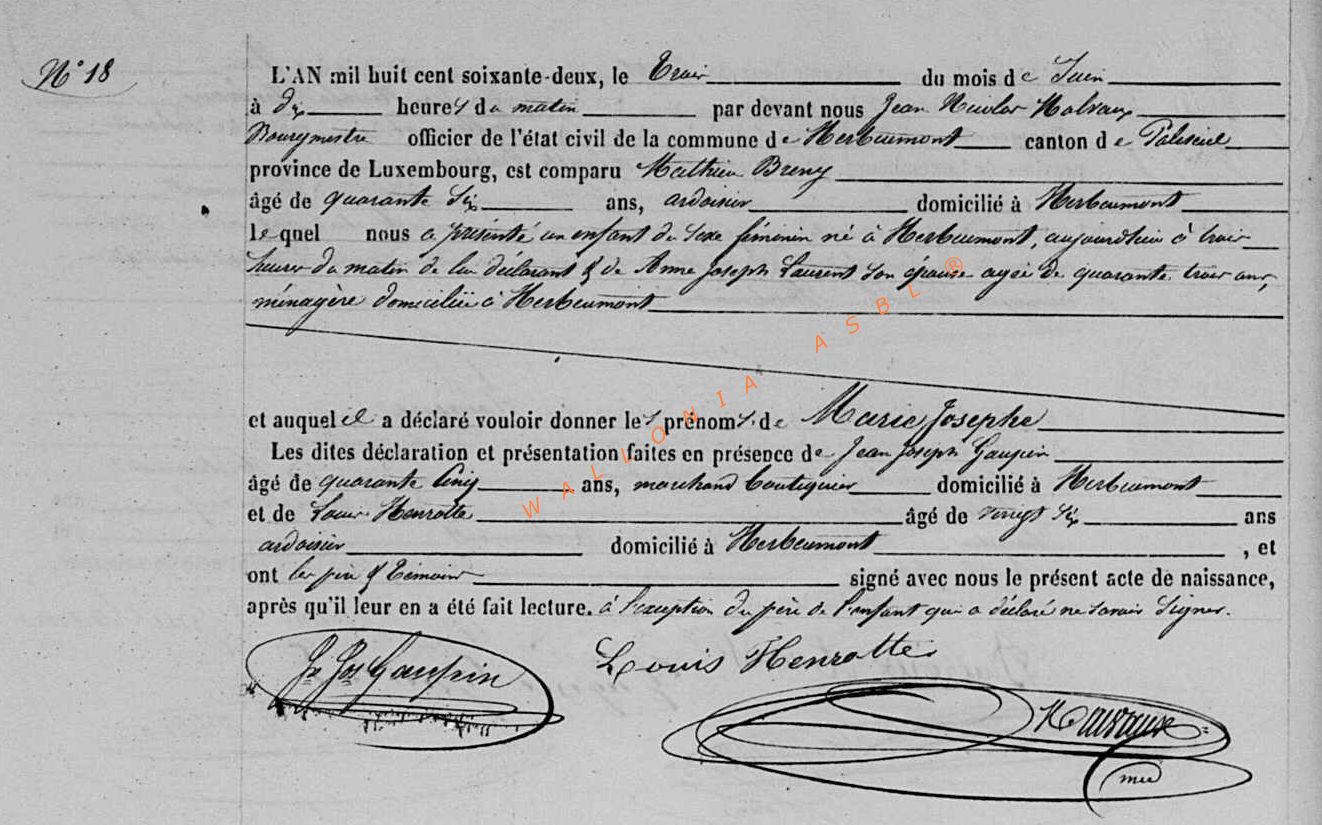 N° 18
L'AN mil huit cent soixante-deux, le Trois du mois de Juin
à dix heures du matin par devant nous Jean Nicolas
Bourgmestre officier de l'état civil de la commune de Herbeumont canton de Paliseul
province de Luxembourg, est comparu Mathieu Breny
âgé de quarante Six ans, ardoisier domicilié à Herbeumont
lequel nous a présenté un enfant du sexe féminin né à Herbeumont, aujourdhui à trois
heures du matin de lui déclarant & de Anne Joseph Laurent Son épouse agée de quarante trois ans,
ménagère domiciliée à Herbeumont
et auquel il a déclaré vouloir donner les prénoms de Marie Josephe
Les dites déclaration et présentation faites en présence de Jean Joseph Gaupin
âgé de quarante Cinq ans, marchand boutiquier domicilié à Herbeumont
et de Louis Henrotte âgé de vingt Six ans
ardoisier domicilié à Herbeumont, et
ont les père & Témoins signé avec nous le présent acte de naissance,
après qu'il leur en a été fait lecture. à l'exception du père de l'enfant qui a déclaré ne savoir Signer.
Jn Jos Gaupin
Louis Henrotte
WALLONIA ASBL ®